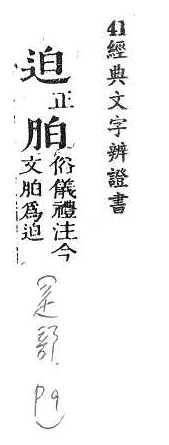 41經典文字辨證書
迫正
胉俗儀禮注今
文胉爲迫
(辵部. P9)